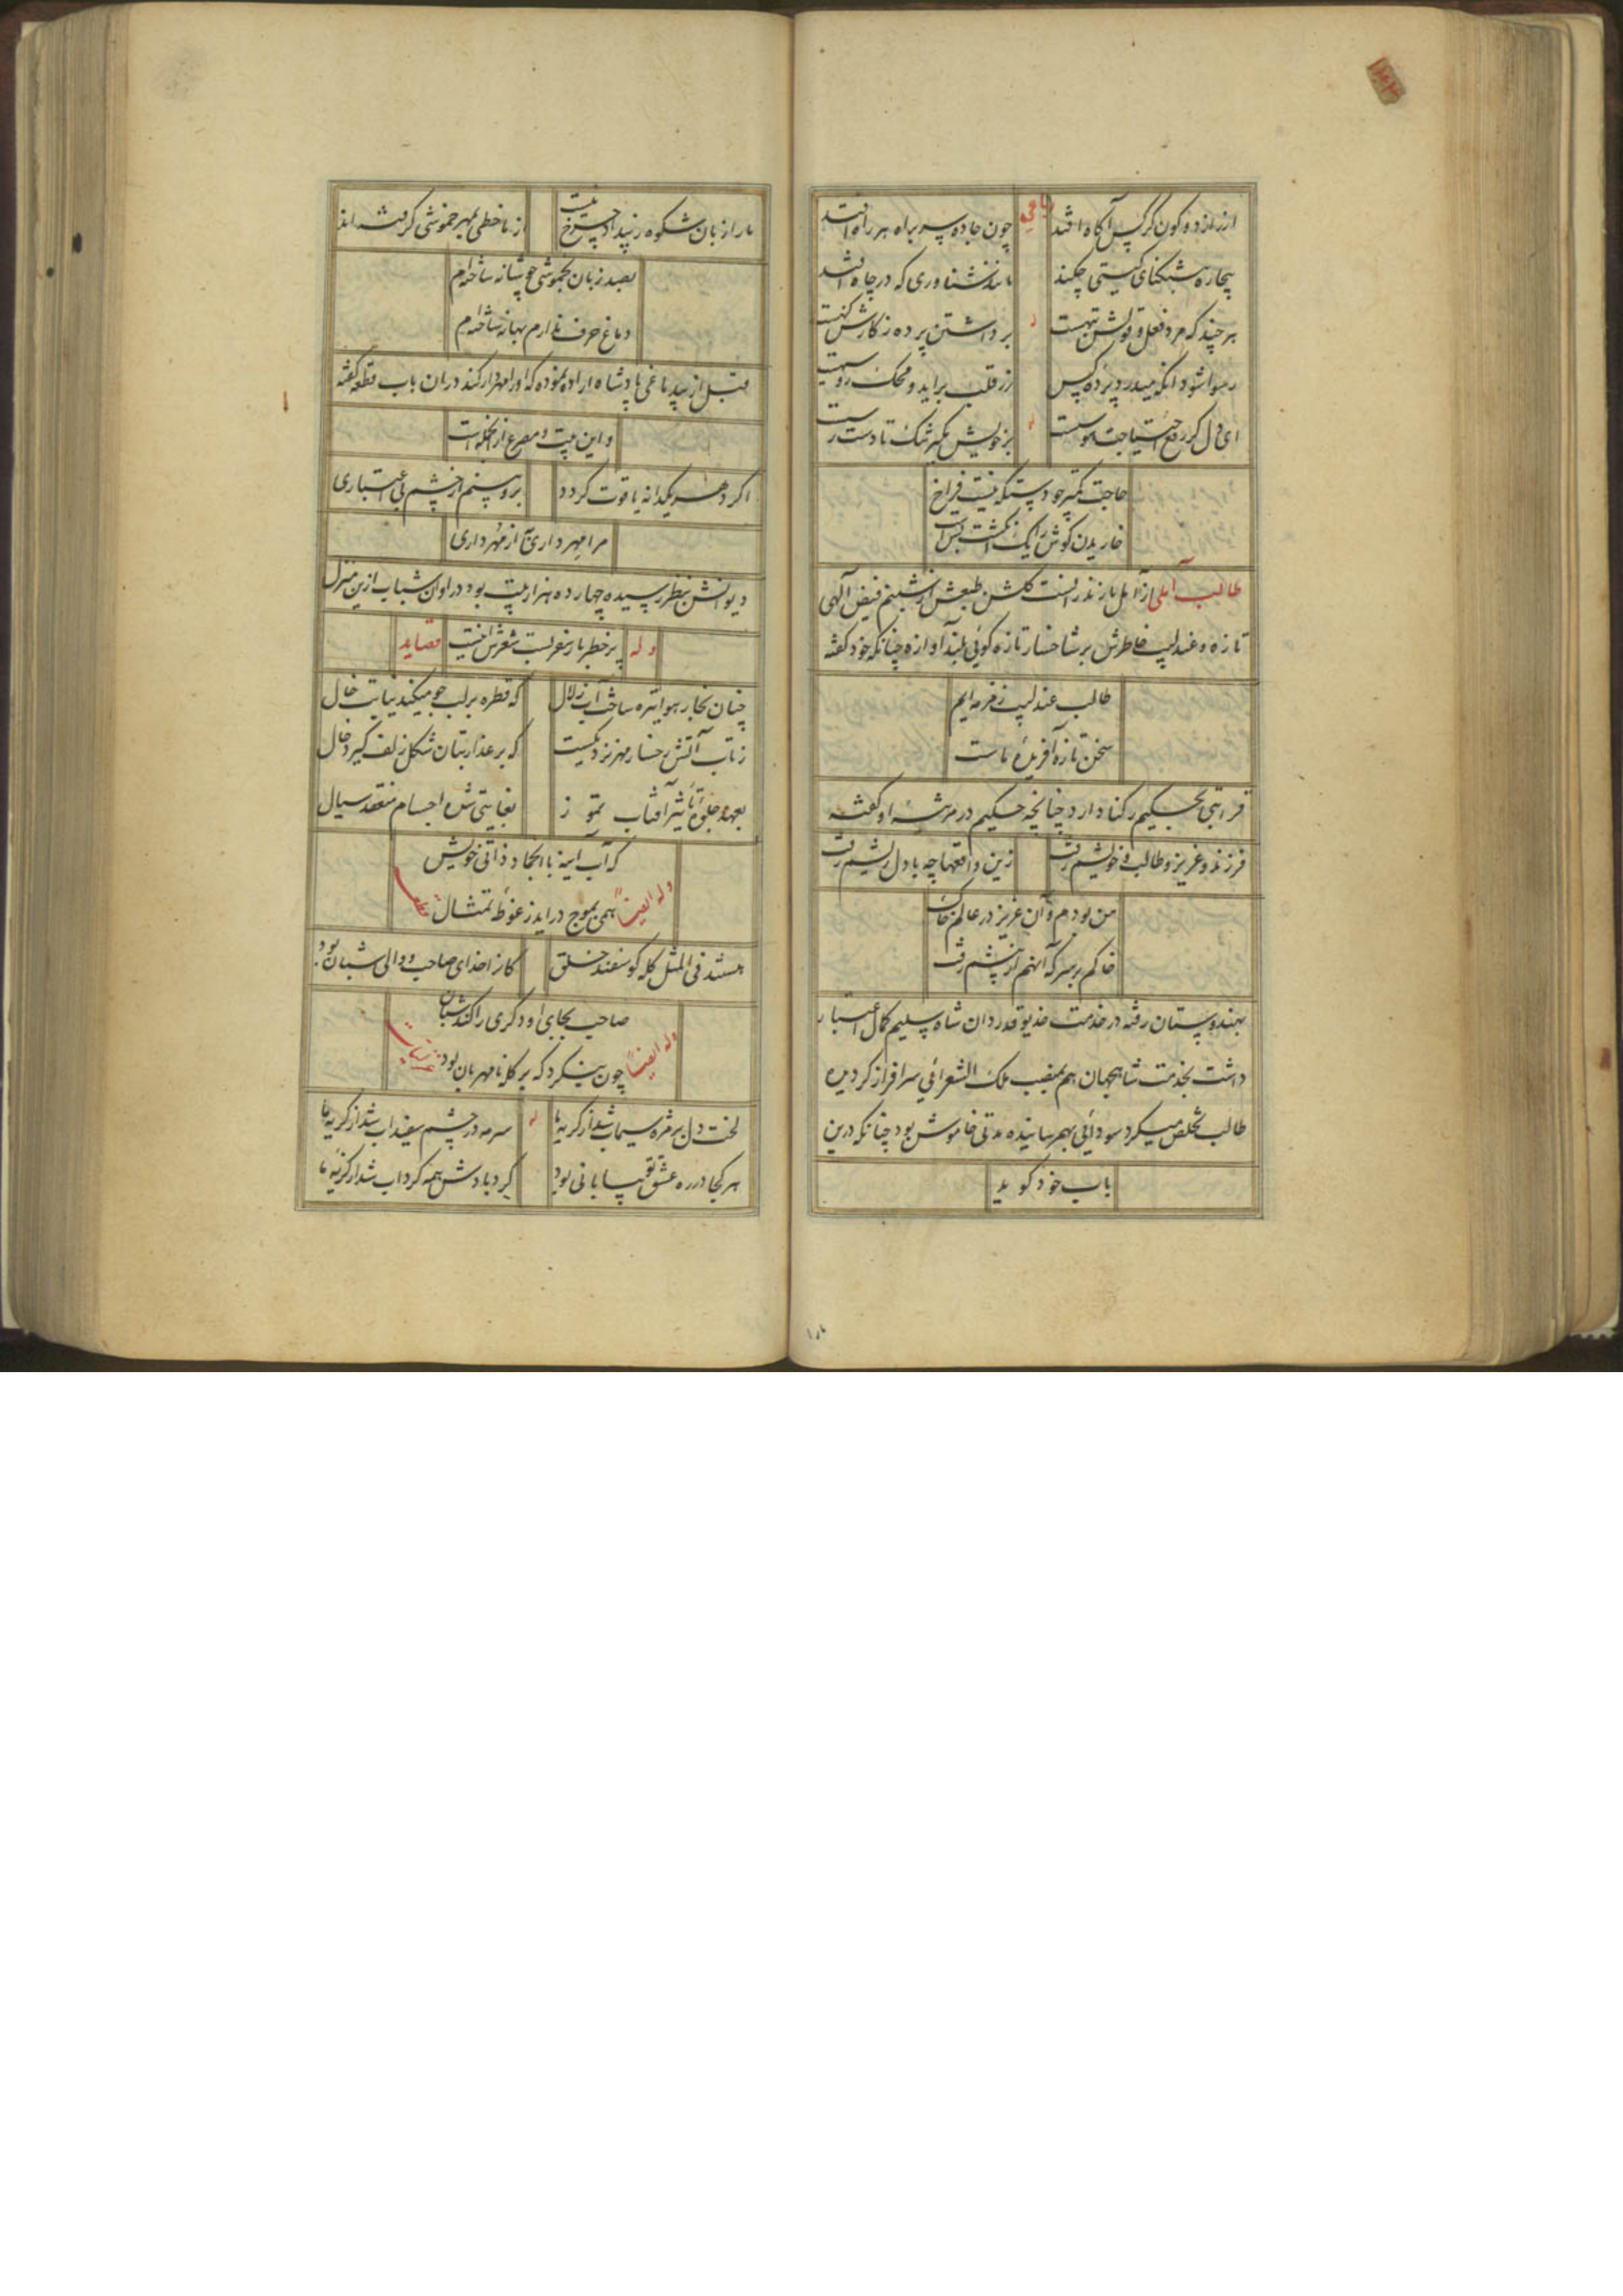 رباعی
از راز دو کون گر کس آگاه افتد
چون جاده سر براه هر راه افتد
بیچاره بتنگنای گیتی چکند
مانند شناوری که در چاه افتد
هر چند که مرد فعل و قولش تبهست
برداشتن پرده ز کارش گنهست
رسوا شود آنکه میدرد پرده کس
زر قلب براید و محک رو سیهست
ای دل گر رفع احتیاجت هوست
بر خویش بگیر تنک تا دست رست
حاجت بکسی چو دستگه نیست فراخ
خاریدن گوش را یک انگشت بس است
طالب آملی از آمل مازندرانست گلشن طبعش از شبنم فیض الهی
تازه و عندلیب خاطرش بر شاخسار تازه گوئی بلند آوازه چنانکه خود گفته
طالب عندلیب زمزمه ایم
سخن تازه آفریدۀ ماست
قرابتی بحکیم رکنا دارد چنانچه حکیم در مرثیۀ او گفته
فرزند و عزیز و طالب و خویشم رفت
زین واقعها چه با دل ریشم رفت
من بودم و آن عزیز در عالم خاک
خاکم بر سر که آنهم از پیشم رفت
بهندوستان رفته در خدمت خدیو قدردان شاه سلیم کمال اعتبار
داشت بخدمت شاهجهان هم بمنصب ملک الشعرائی سرافراز گردیده
طالب تخلص میکرد سودائی بهمرسانیده مدتی خاموش بود چنانکه درین
باب خود گوید
ما را زبان شکوه ز بیداد چرخ نیست
از ما خطی بمهر خموشی گرفته اند
بصد زبان بخموشی چو شانه ساخته ام
دماغ حرف ندارم بهانه ساخته ام
قبل از بیدماغی پادشاه اراده نموده که او را مهردار کند دران باب قطعه گفته
و این بیت و مصرع از انجمله است
اگر دهر یکدانه یاقوت گردد
برو بینم از چشم بی اعتباری
مرا مهر داری به از مُهرداری
دیوانش بنظر رسیده چهارده هزار بیت بود در اوان شباب ازین منزل
پر خطر بار سفر بست شعرش اینست
وله
قصاید
چنان بخار هوا تیره ساخت آب زلال
که قطره بر لب جو میکند نیابت خال
ز تاب آتش رخسار مهر نزدیکست
که بر عذار بتان شکل زلف گیرد خال
بعهد جلوۀ تأثیر آفتاب تموز
بغایتی شده اجسام منعقد سیال
که آب اینه با انجماد ذاتی خویش
همی بموج دراید ز غوطۀ تمثال
وله ایضاً
قطعه
هستند فی المثل گله گوسفند خلق
کاز اخدای صاحب و والی شبان بود
صاحب بجای او دگری را کند شبان
چون بنگرد که بر گله نامهربان بود
وله ایضاً
غزلیات
لخت دل بر مژه سیماب شد از گریه ما
سرمه در چشم سفیداب شد از گریۀ ما
هر کجا در ره عشق تو بیابانی بود
گردبادش همه گرداب شد از گریۀ ما